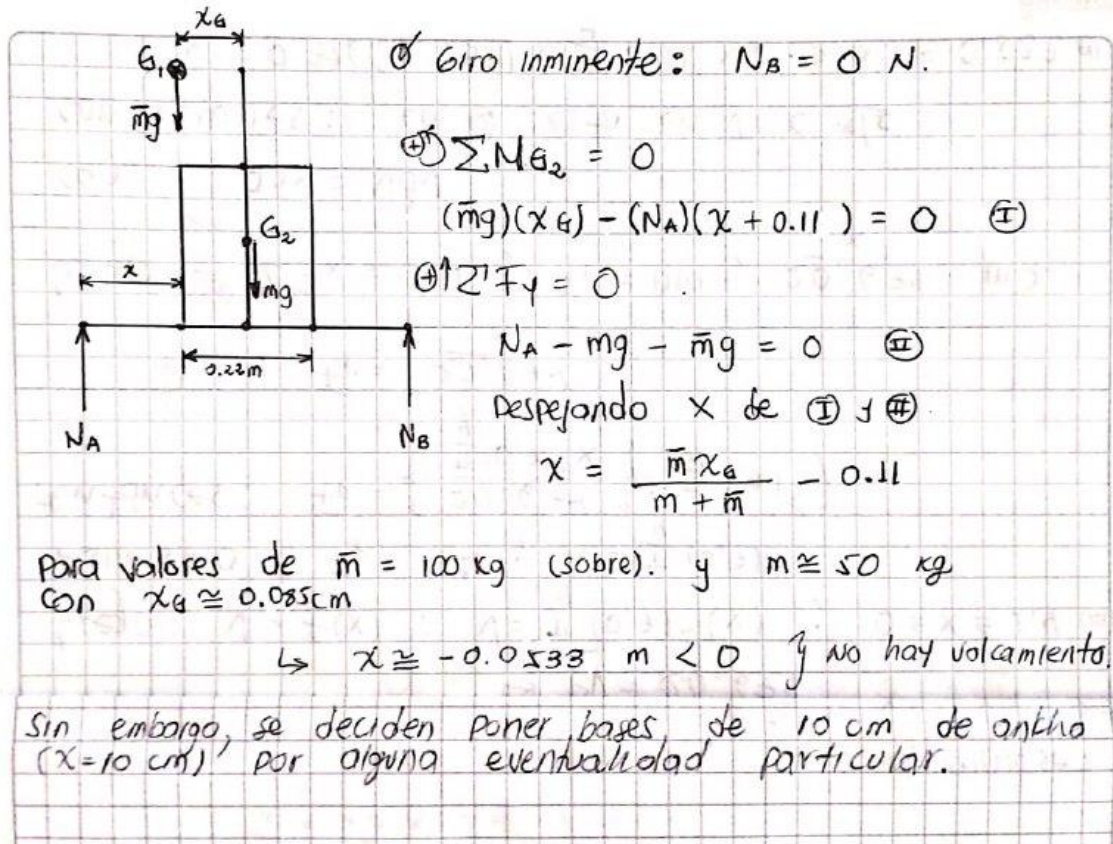 x_G
G₁
m̄g
G₂
x
mg
0.22m
N_A
N_B
Giro inminente: N_B = 0 N.
⊕ ΣM_G₂ = 0
(m̄g)(x_G) - (N_A)(x + 0.11) = 0 Ⓘ
⊕↑ΣFy = 0
N_A - mg - m̄g = 0 Ⓘ︎Ⓘ
Despejando x de Ⓘ y ⒾⒾ
x = m̄ x_G / (m + m̄) - 0.11
Para valores de m̄ = 100 kg (sobre). y m ≅ 50 kg
con x_G ≅ 0.085cm
↳ x ≅ -0.0533 m < 0 } No hay volcamiento.
Sin embargo, se deciden poner bases de 10 cm de ancho
(x=10 cm) por alguna eventualidad particular.